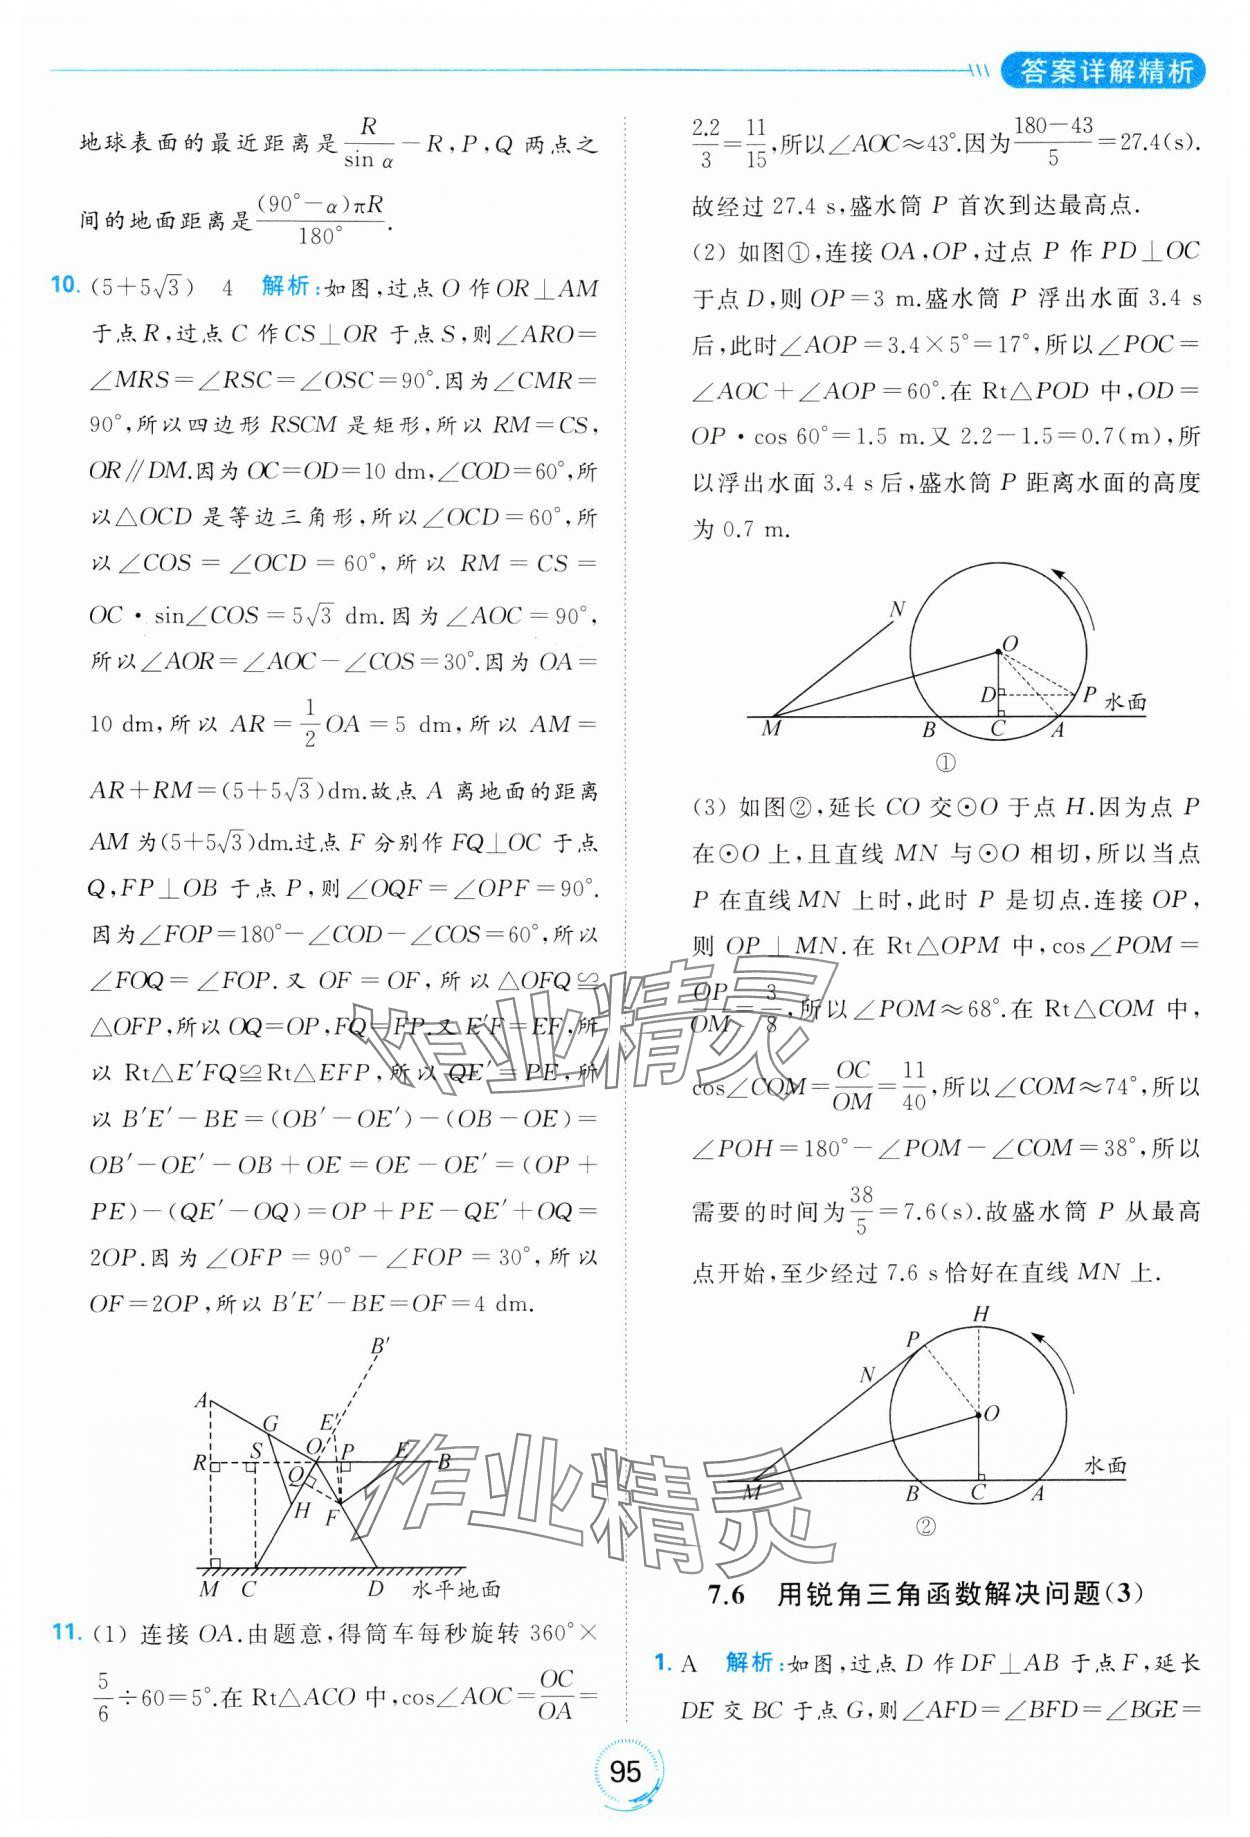 答案详解精析
地球表面的最近距离是R/sin α－R,P,Q 两点之
间的地面距离是(90°－α)πR/180°.
10. (5+5√3) 4 解析:如图,过点 O 作 OR⊥AM
于点 R,过点 C 作 CS⊥OR 于点 S,则∠ARO=
∠MRS=∠RSC=∠OSC=90°.因为∠CMR=
90°,所以四边形 RSCM 是矩形,所以 RM=CS,
OR∥DM.因为 OC=OD=10 dm,∠COD=60°,所
以△OCD 是等边三角形,所以∠OCD=60°,所
以∠COS=∠OCD=60°,所以 RM=CS=
OC·sin∠COS=5√3 dm.因为∠AOC=90°,
所以∠AOR=∠AOC－∠COS=30°.因为 OA=
10 dm,所以 AR=1/2OA=5 dm,所以 AM=
AR+RM=(5+5√3)dm.故点 A 离地面的距离
AM 为(5+5√3)dm.过点 F 分别作 FQ⊥OC 于点
Q,FP⊥OB 于点 P,则∠OQF=∠OPF=90°.
因为∠FOP=180°－∠COD－∠COS=60°,所以
∠FOQ=∠FOP.又 OF=OF,所以△OFQ≌
△OFP,所以 OQ=OP,FQ=FP.又 E′F=EF,所
以 Rt△E′FQ≌Rt△EFP,所以 QE′=PE,所
以 B′E′－BE=(OB′－OE′)－(OB－OE)=
OB′－OE′－OB+OE=OE－OE′=(OP+
PE)－(QE′－OQ)=OP+PE－QE′+OQ=
2OP.因为∠OFP=90°－∠FOP=30°,所以
OF=2OP,所以 B′E′－BE=OF=4 dm.
B′
A
G
E′
R
S
O
P
E
B
Q
H
F
M
C
D
水平地面
11. (1) 连接 OA.由题意,得筒车每秒旋转 360°×
5/6÷60=5°.在 Rt△ACO 中,cos∠AOC=OC/OA=
2.2/3=11/15,所以∠AOC≈43°.因为(180－43)/5=27.4(s).
故经过 27.4 s,盛水筒 P 首次到达最高点.
(2) 如图①,连接 OA,OP,过点 P 作 PD⊥OC
于点 D,则 OP=3 m.盛水筒 P 浮出水面 3.4 s
后,此时∠AOP=3.4×5°=17°,所以∠POC=
∠AOC+∠AOP=60°.在 Rt△POD 中,OD=
OP·cos 60°=1.5 m.又 2.2－1.5=0.7(m),所
以浮出水面 3.4 s 后,盛水筒 P 距离水面的高度
为 0.7 m.
N
O
D
P
水面
M
B
C
A
①
(3) 如图②,延长 CO 交⊙O 于点 H.因为点 P
在⊙O 上,且直线 MN 与⊙O 相切,所以当点
P 在直线 MN 上时,此时 P 是切点.连接 OP,
则 OP⊥MN.在 Rt△OPM 中,cos∠POM=
OP/OM=3/8,所以∠POM≈68°.在 Rt△COM 中,
cos∠COM=OC/OM=11/40,所以∠COM≈74°,所以
∠POH=180°－∠POM－∠COM=38°,所以
需要的时间为38/5=7.6(s).故盛水筒 P 从最高
点开始,至少经过 7.6 s 恰好在直线 MN 上.
H
P
N
O
水面
M
B
C
A
②
7.6 用锐角三角函数解决问题(3)
1. A 解析:如图,过点 D 作 DF⊥AB 于点 F,延长
DE 交 BC 于点 G,则∠AFD=∠BFD=∠BGE=
95
作业精灵
作业精灵